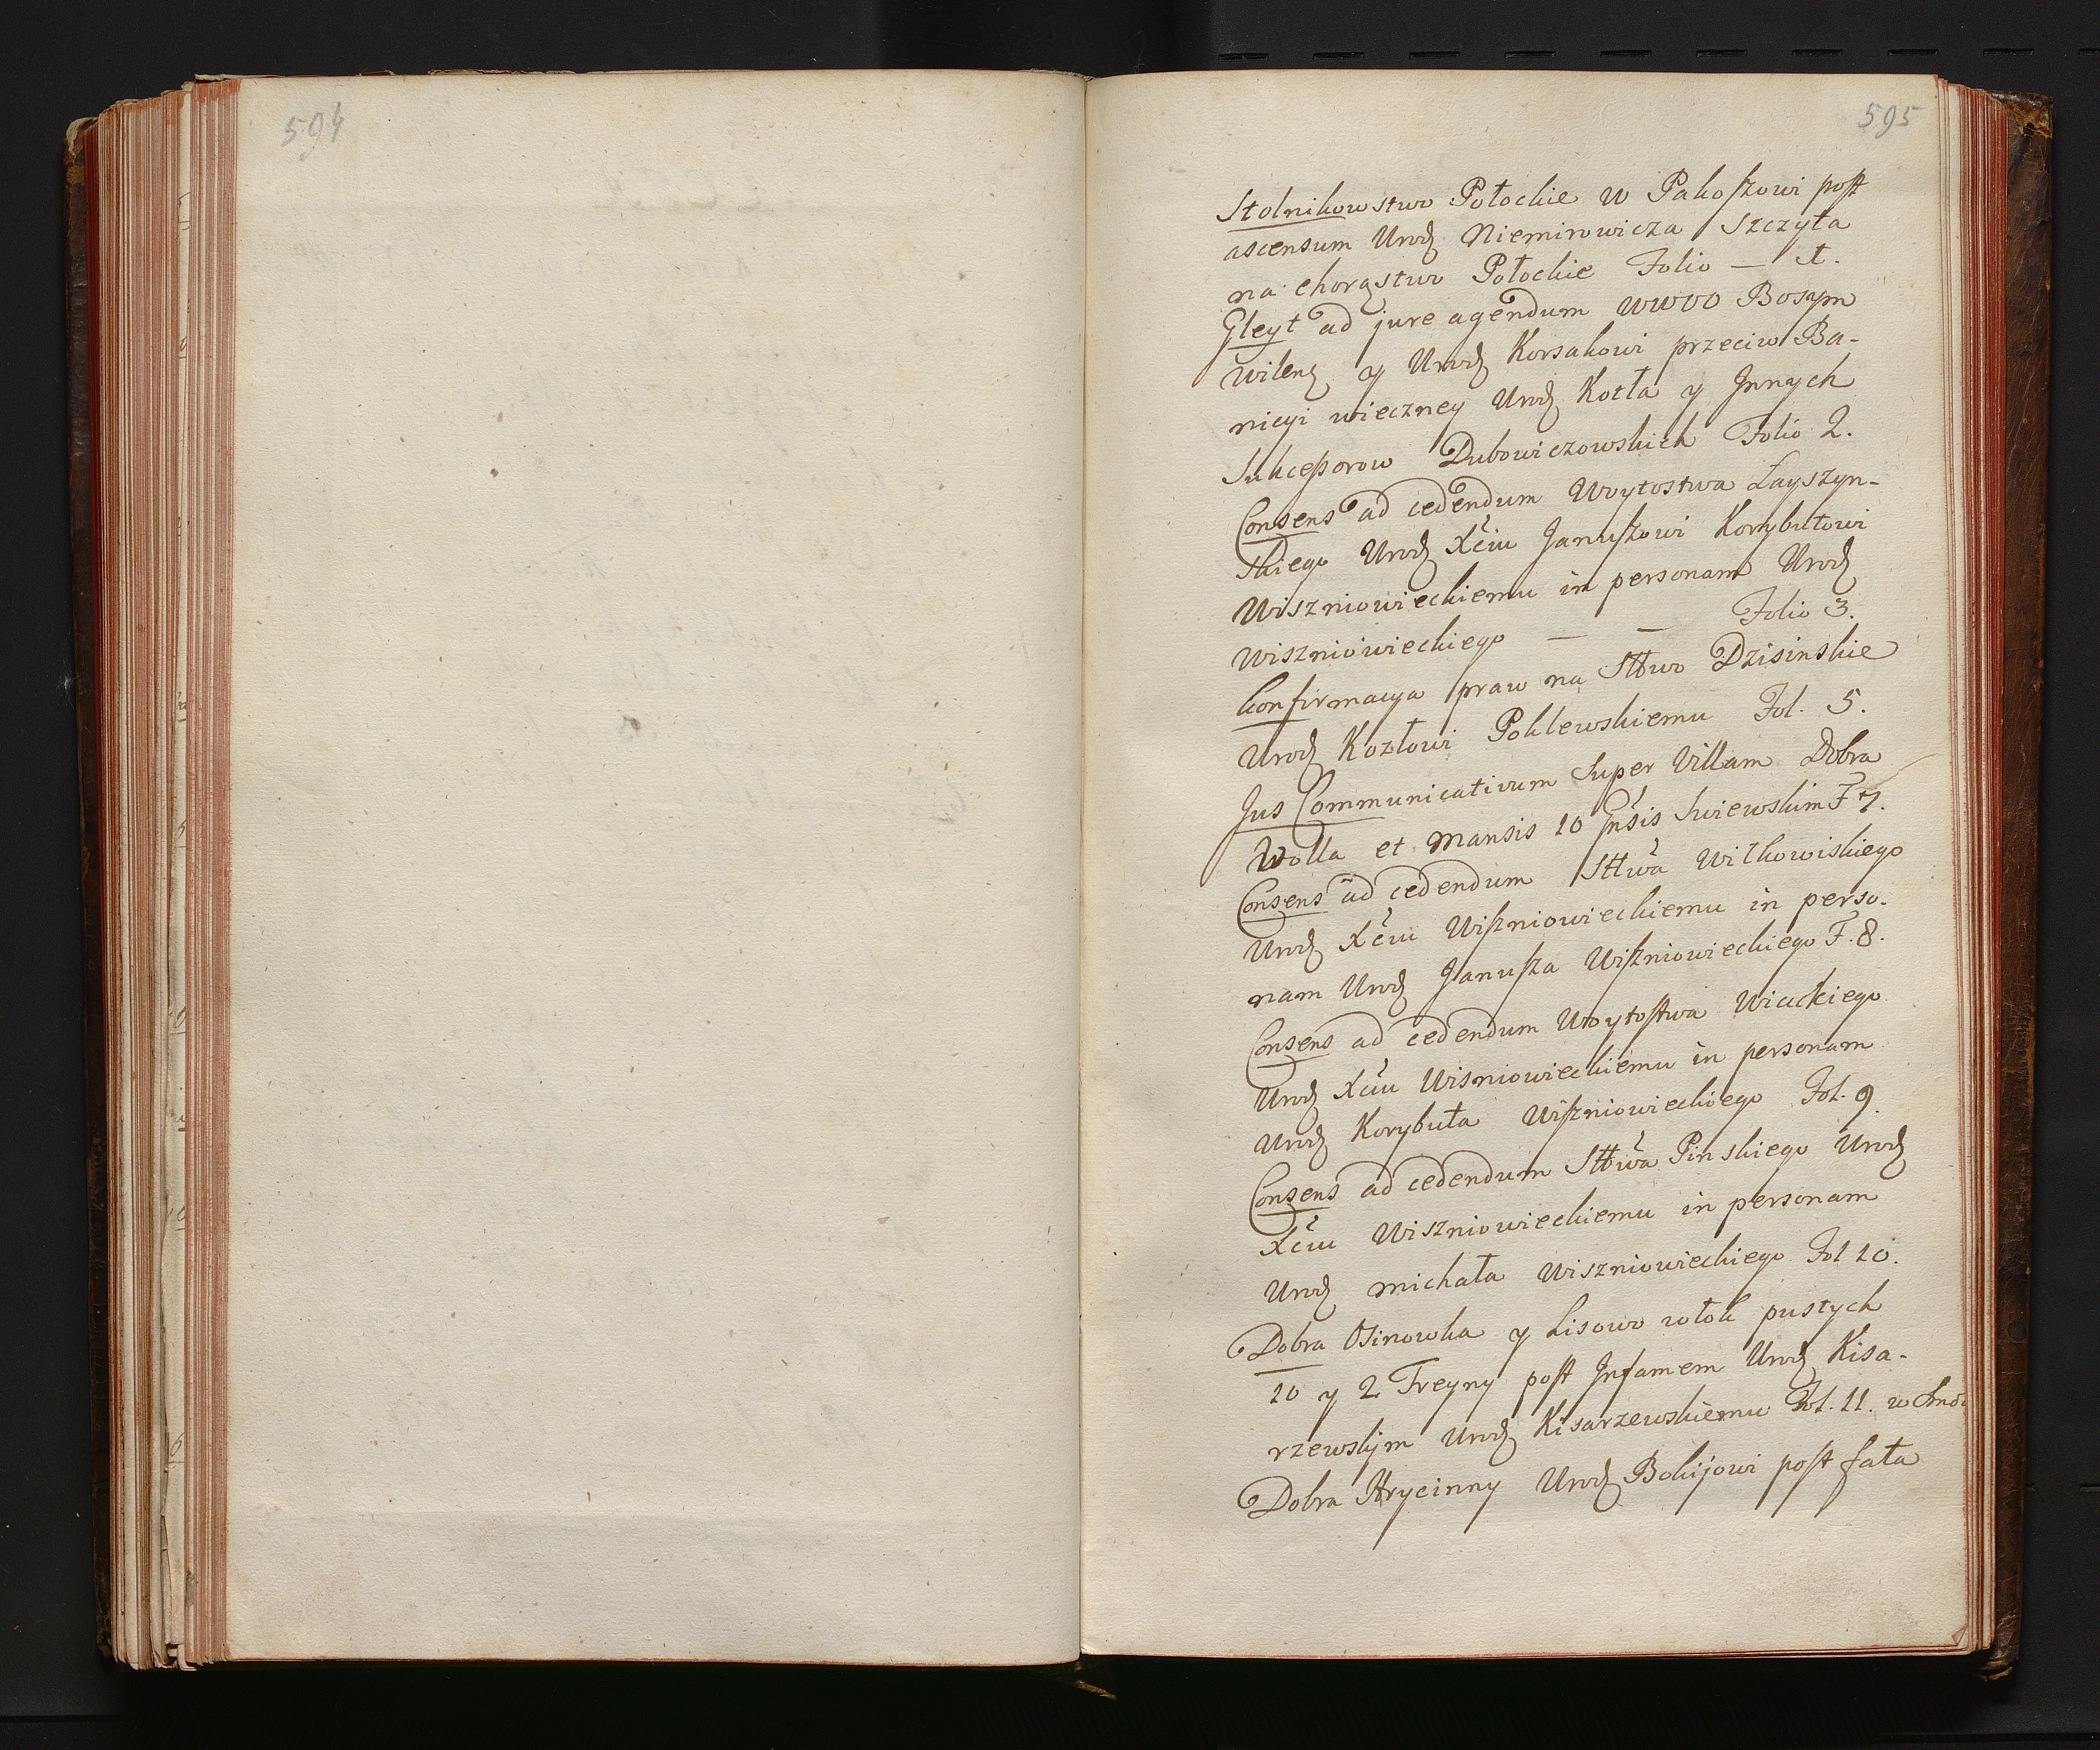 594
595
Stolnikowstwo Połockie W Pakoszowi post
ascensum Urodz Niemirowicza Szczyta
na chorąstwo Połockie Folio — 1.
Gleyt ad jure agendum WWOO Bosym
Wileng y Urodz Korsakowi przeciw Ba-
nicyi wieczney Urodz Kotła y Innych
Sukcessorow Dubowiczowskich Folio 2.
Consens ad cedendum Woytostwa Łayszyn-
skiego Urodz Xciu Januszowi Korybutowi
Wiszniowieckiemu in personam Urodz
Wiszniowieckiego — — Folio 3.
Confirmacya praw na Sttwo Dzisinskie
Urodz Kozłowi Poklewskiemu Fol. 5.
Jus Communicativum Super Villam Dobra
Wolla et Mansis 10 Gnsis F 7.
Consens ad cedendum Sttwa Wilkowiskiego
Urodz Xciu Wiszniowieckiemu in perso-
nam Urodz Janusza Wiszniowieckiego F. 8.
Consens ad cedendum Woytostwa
Urodz Xciu Wisniowieckiemu in personam
Urodz Korybuta Wiszniowieckiego Fol. 9
Consens ad cedendum Sttwa Pinskiego Urodz
Xciu Wiszniowieckiemu in personam
Urodz Michała Wiszniowieckiego Fol 10.
Dobra Osinowka y Lisowo włok pustych
10 y 2 Treyny post Infamem Urodz Kisa-
rzewskim Urodz Kisarzewskiemu Fol. 11. w
Dobra Hrycinny Urodz Bokijowi post fata